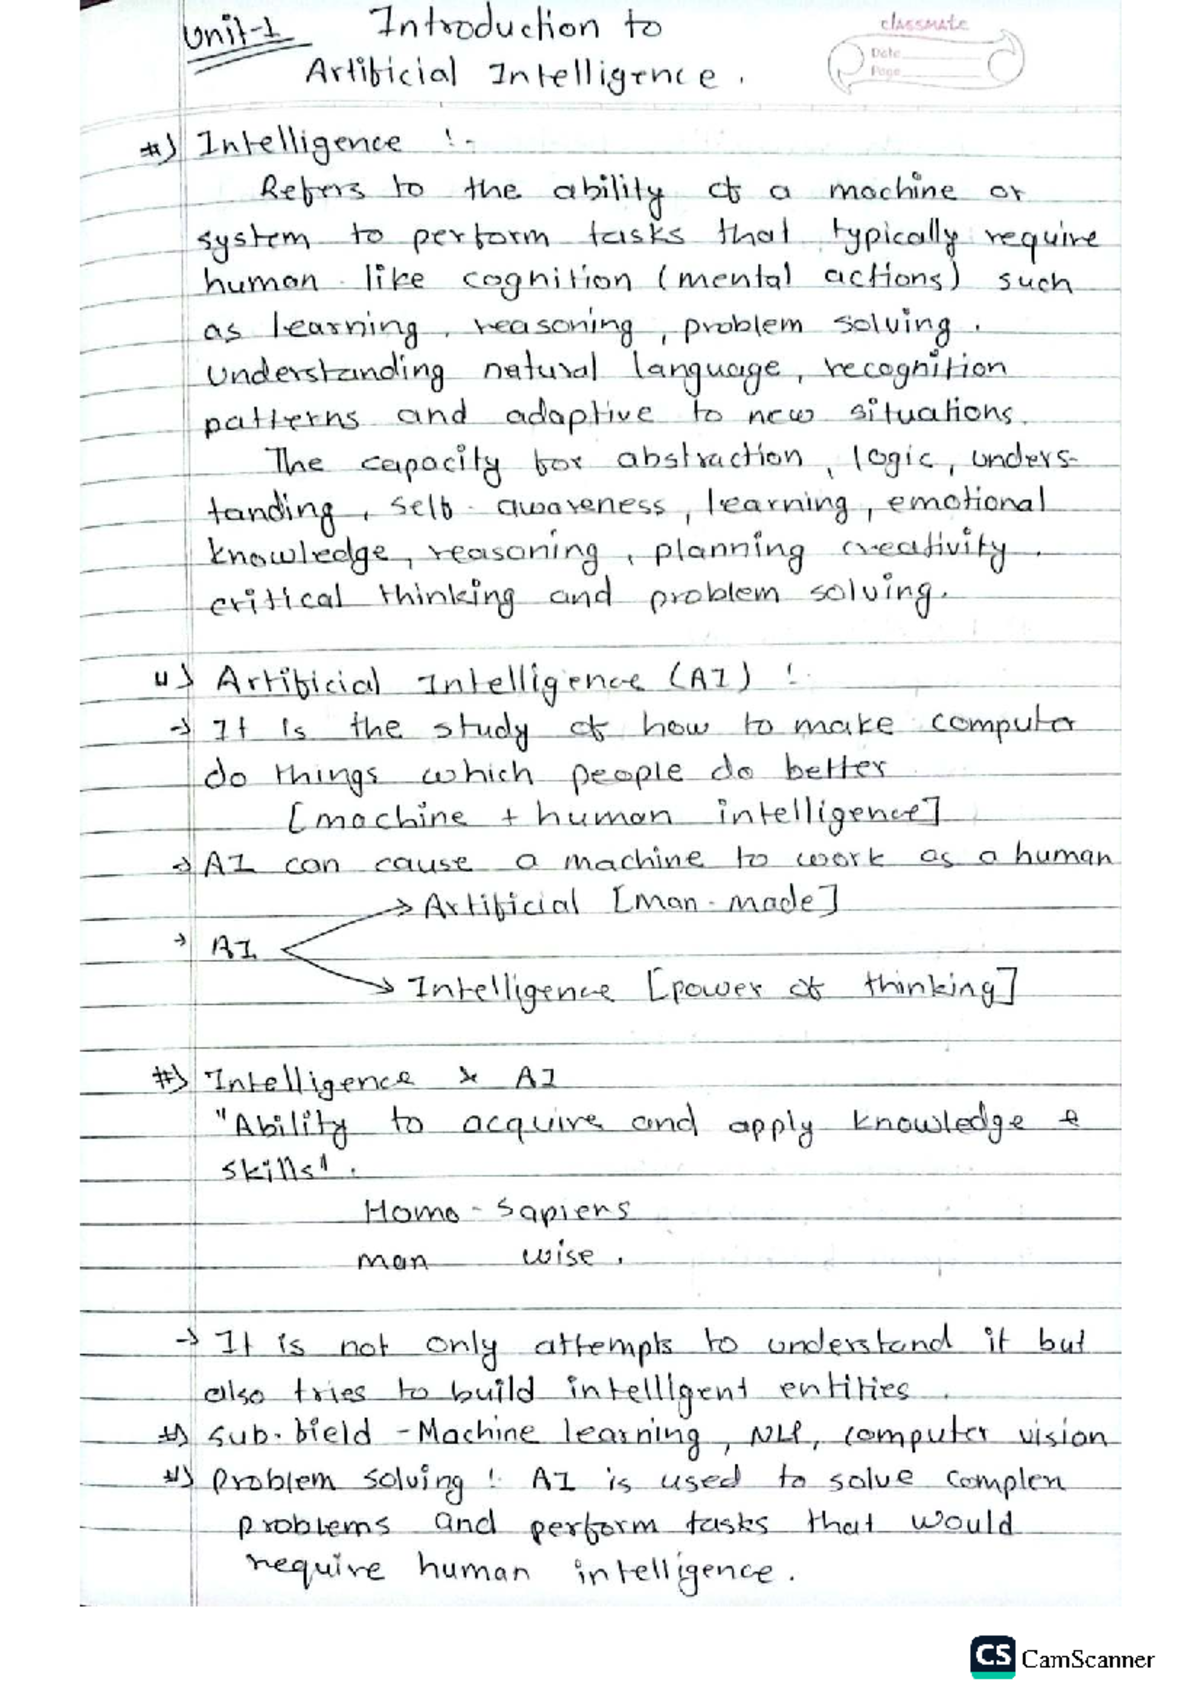 Unit-1 Introduction to
Artificial Intelligence.
classmate
Date
Page
#) Intelligence :-
Refers to the ability of a machine or
system to perform tasks that typically require
human like cognition (mental actions) such
as learning, reasoning, problem solving.
Understanding natural language, recognition
patterns and adaptive to new situations.
The capacity for abstraction, logic, unders-
tanding, self-awareness, learning, emotional
knowledge, reasoning, planning creativity.
critical thinking and problem solving.
#) Artificial Intelligence (AI) :-
→ It is the study of how to make computer
do things which people do better
[machine + human intelligence]
→ AI can cause a machine to work as a human
→ Artificial [Man-made]
→ AI
→ Intelligence [power of thinking]
#) Intelligence & AI
"Ability to acquire and apply knowledge &
skills".
Homo-Sapiens
man wise.
→ It is not only attempts to understand it but
also tries to build intelligent entities.
#) Sub-field - Machine learning, NLP, computer vision
#) Problem solving : AI is used to solve complex
problems and perform tasks that would
require human intelligence.
CS CamScanner